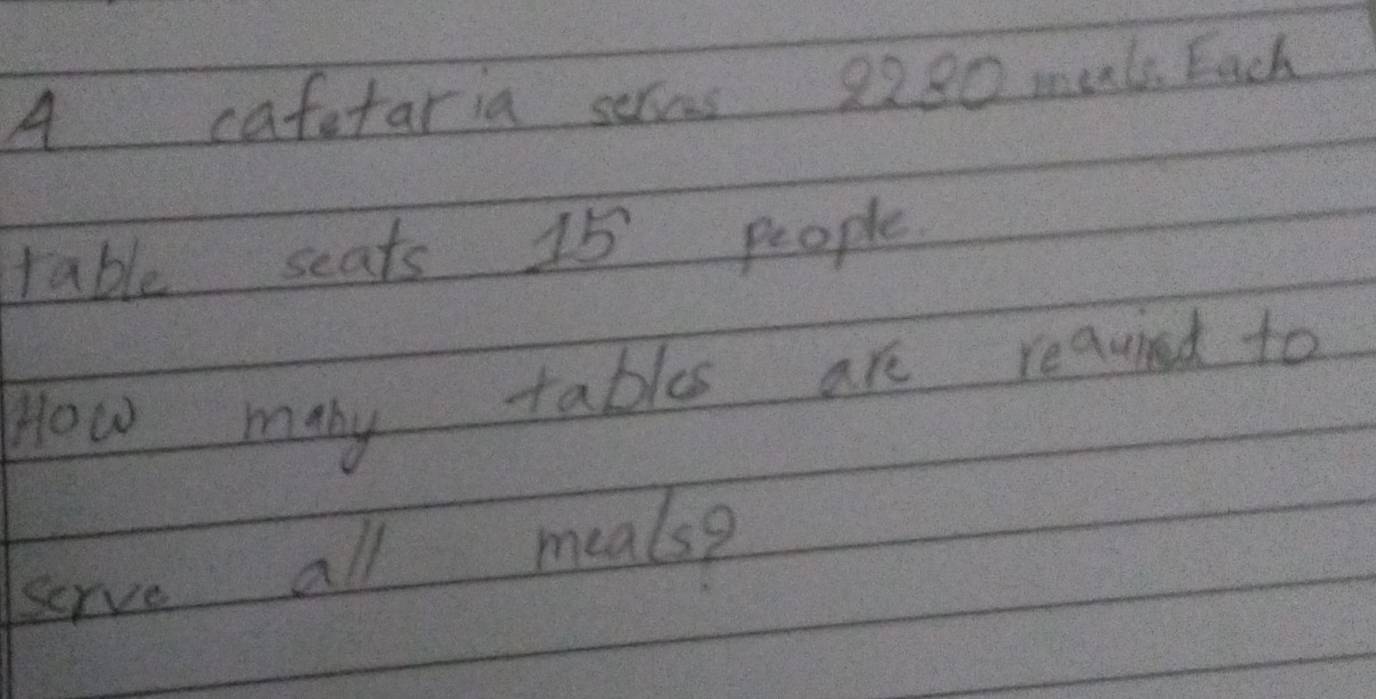 A cafetaria serves 2280 meals. Each
table seats 15 people.
How many tables are required to
serve all meals?